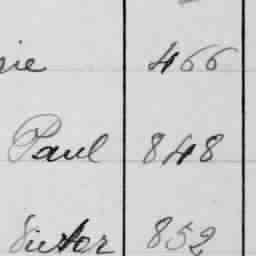 rie 466
Paul 848
Victor 852